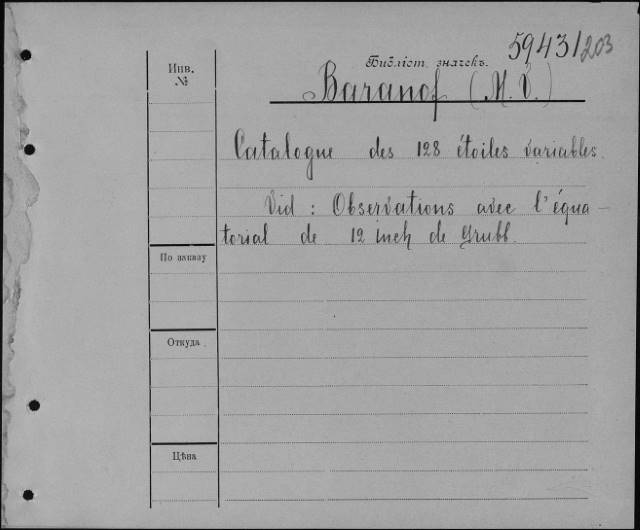 59431/203
Инв.
№
Библіот. значекъ.
Baranof (M. V.)
Catalogue des 128 étoiles variables.
Vid: Observations avec l'équa-
torial de 12 inch de Grubb.
По заказу
Откуда
Цѣна